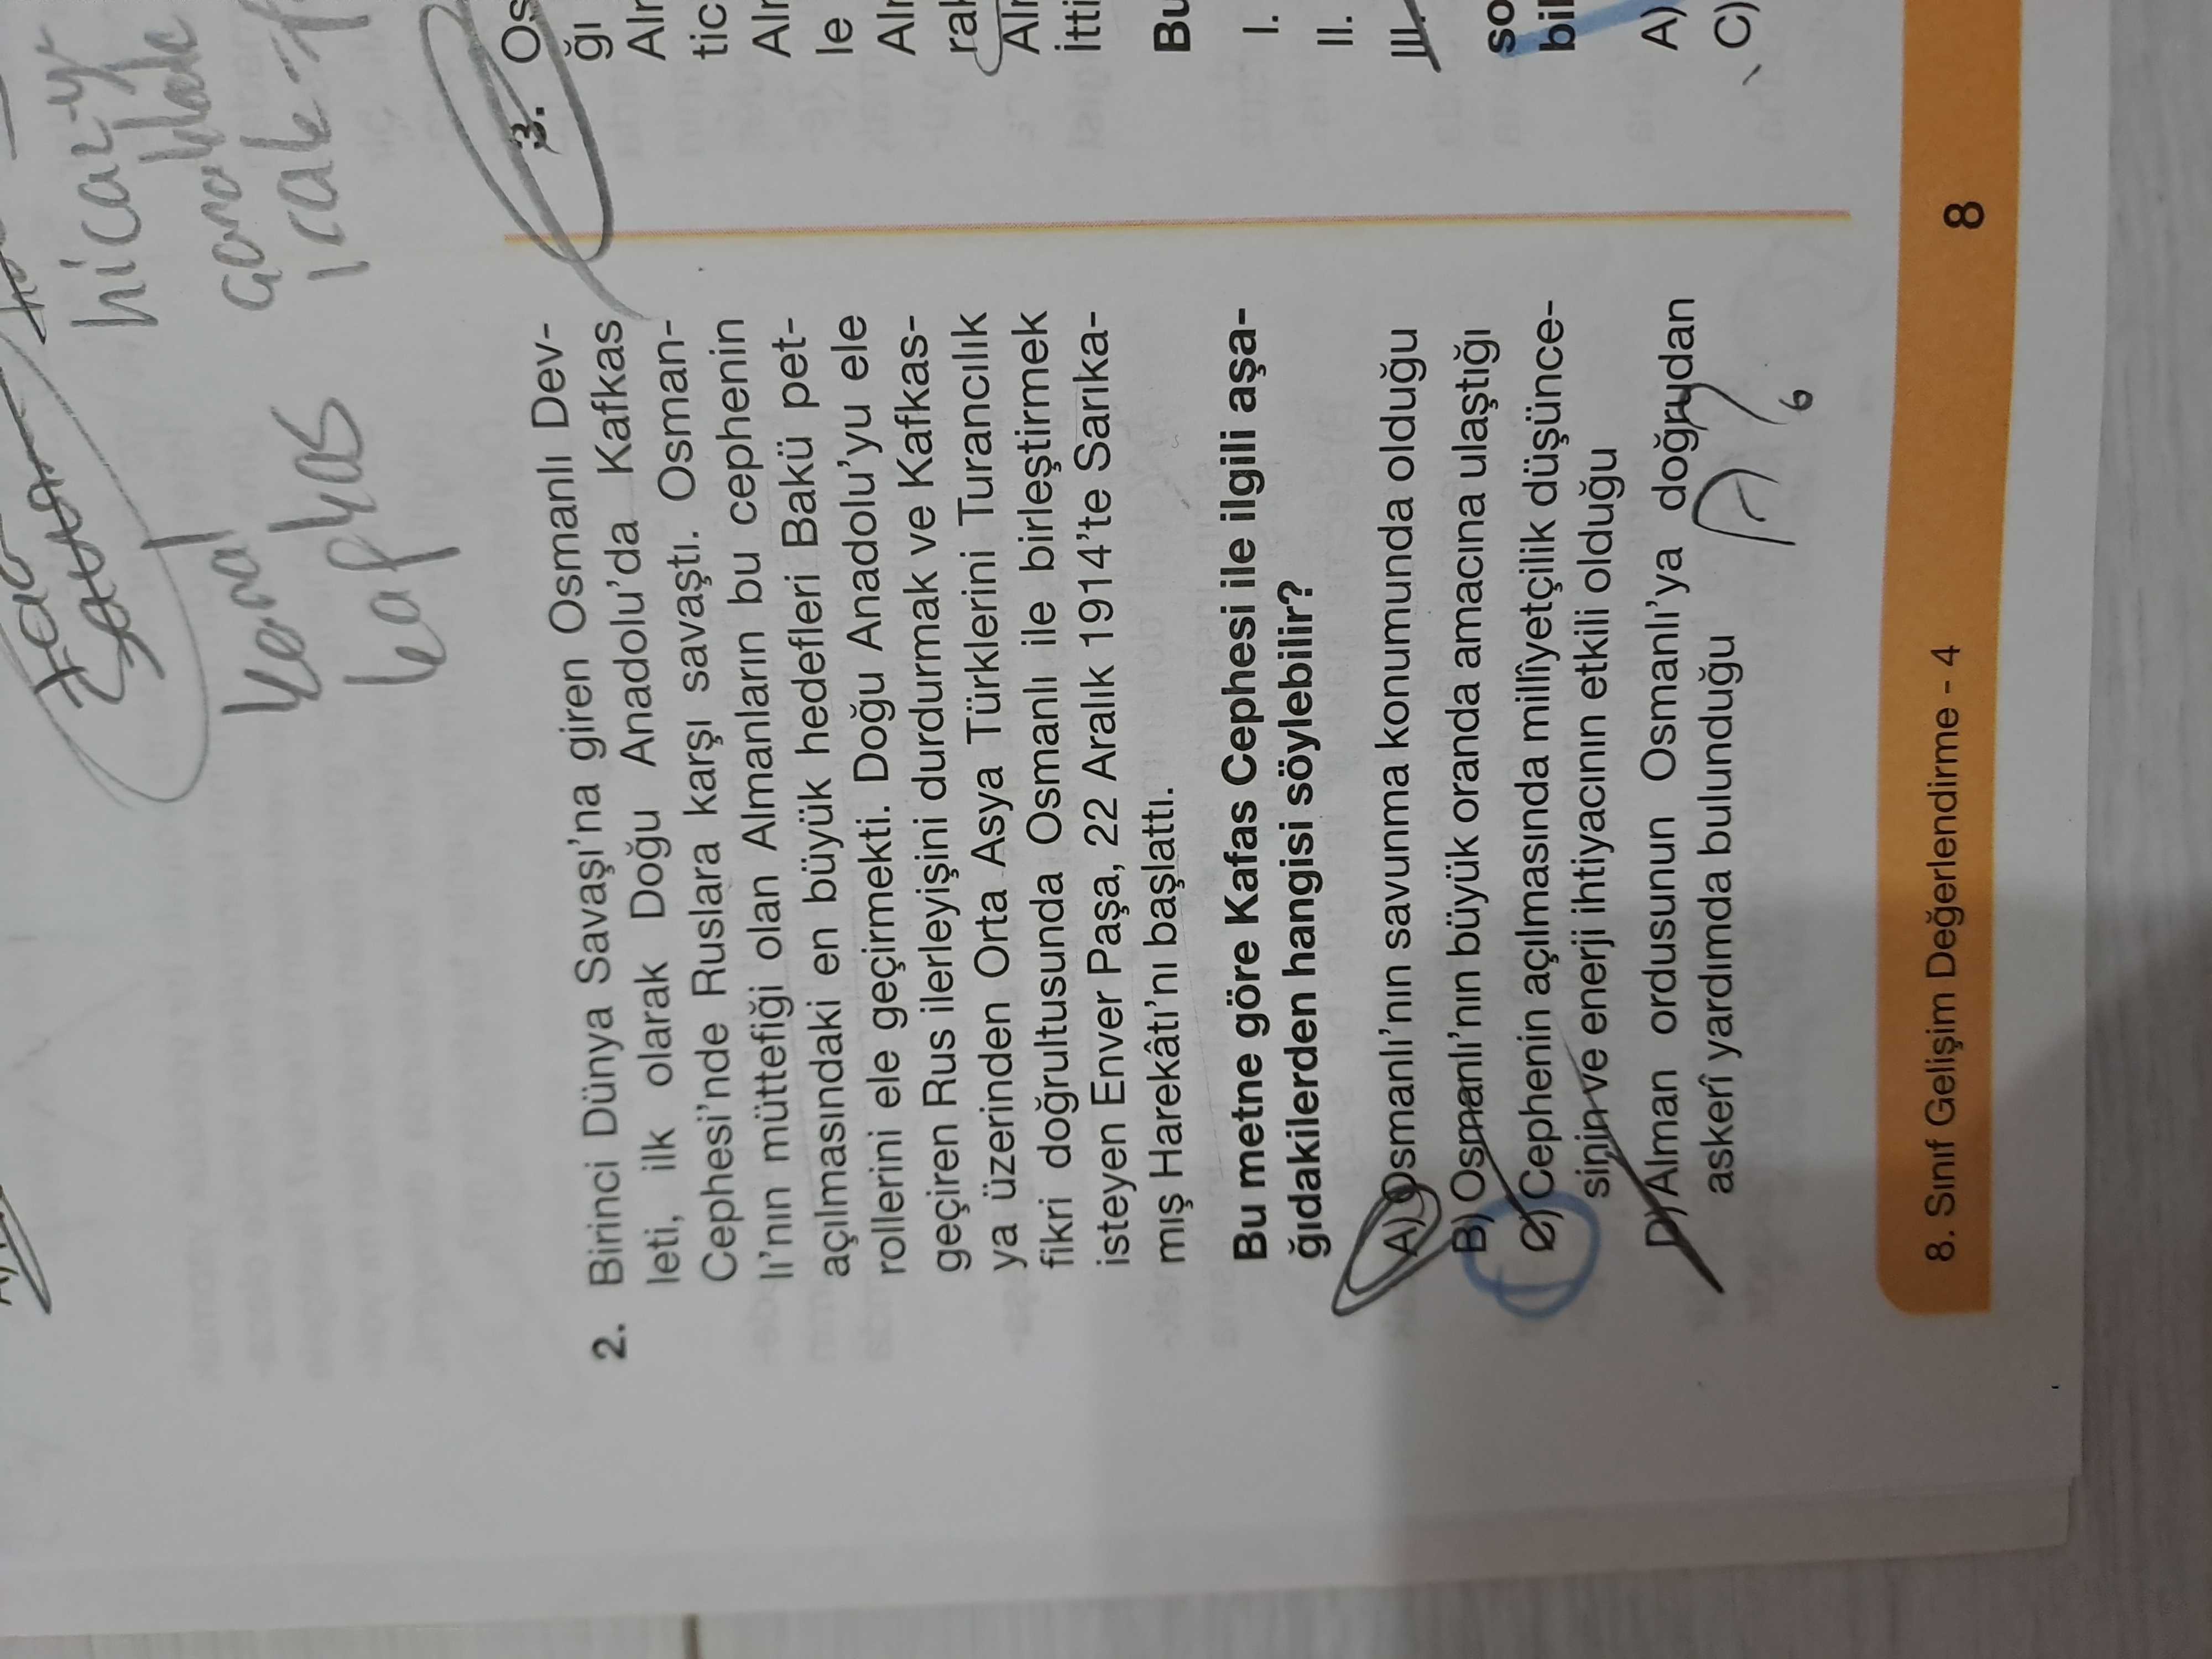 hicaz-y
kanal
kafkas
2. Birinci Dünya Savaşı'na giren Osmanlı Dev-
leti, ilk olarak Doğu Anadolu'da Kafkas
Cephesi'nde Ruslara karşı savaştı. Osman-
lı'nın müttefiği olan Almanların bu cephenin
açılmasındaki en büyük hedefleri Bakü pet-
rollerini ele geçirmekti. Doğu Anadolu'yu ele
geçiren Rus ilerleyişini durdurmak ve Kafkas-
ya üzerinden Orta Asya Türklerini Turancılık
fikri doğrultusunda Osmanlı ile birleştirmek
isteyen Enver Paşa, 22 Aralık 1914'te Sarıka-
mış Harekâtı'nı başlattı.
Bu metne göre Kafas Cephesi ile ilgili aşa-
ğıdakilerden hangisi söylebilir?
A) Osmanlı'nın savunma konumunda olduğu
B) Osmanlı'nın büyük oranda amacına ulaştığı
C) Cephenin açılmasında millîyetçilik düşünce-
sinin ve enerji ihtiyacının etkili olduğu
D) Alman ordusunun Osmanlı'ya doğrudan
askerî yardımda bulunduğu
6
3. Os
ğı
Alr
tic
Alr
le
Alr
İtti
Bu
I.
II.
III.
so
bil
A)
C)
8. Sınıf Gelişim Değerlendirme - 4
8